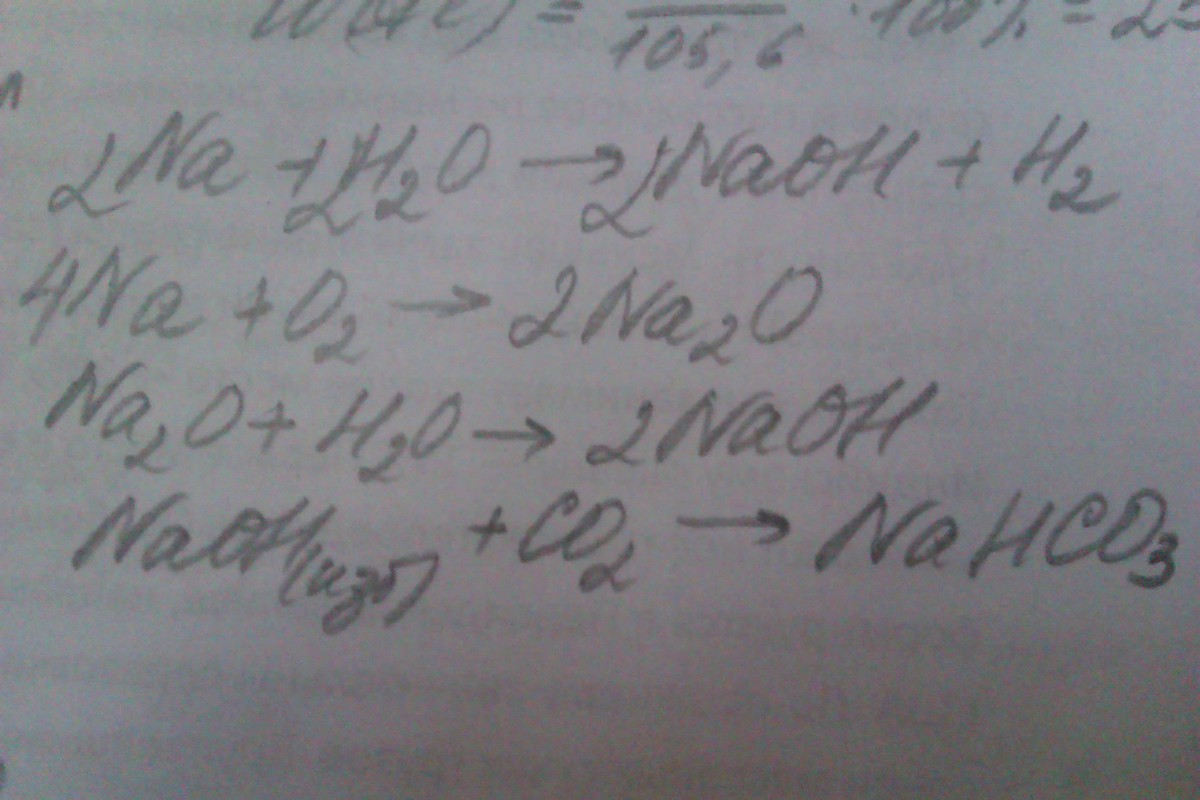 105,6 · 100% = 25
2Na + 2H₂O → 2NaOH + H₂
4Na + O₂ → 2Na₂O
Na₂O + H₂O → 2NaOH
NaOH(изб) + CO₂ → NaHCO₃